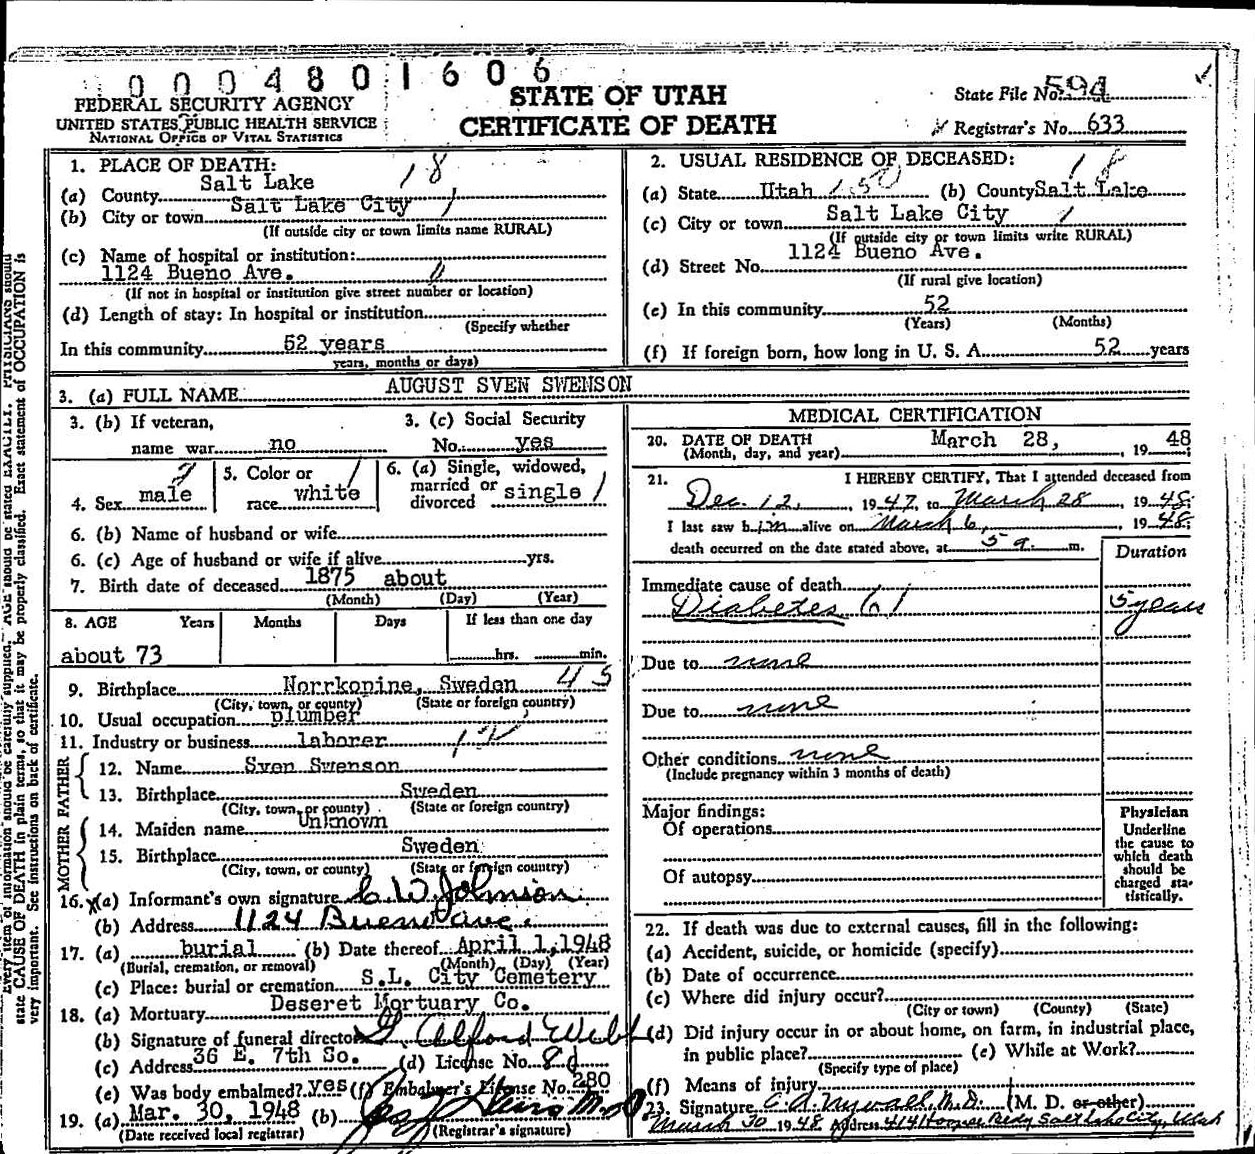 0004801606
FEDERAL SECURITY AGENCY
UNITED STATES PUBLIC HEALTH SERVICE
NATIONAL OFFICE OF VITAL STATISTICS
STATE OF UTAH
CERTIFICATE OF DEATH
State File No. 594
Registrar's No. 633
1. PLACE OF DEATH: 18
(a) County Salt Lake
(b) City or town Salt Lake City 1
(If outside city or town limits name RURAL)
(c) Name of hospital or institution:
1124 Bueno Ave. 0
(If not in hospital or institution give street number or location)
(d) Length of stay: In hospital or institution
(Specify whether
In this community 52 years
years, months or days)
2. USUAL RESIDENCE OF DECEASED: 18
(a) State Utah 150 (b) County Salt Lake
(c) City or town Salt Lake City 1
(If outside city or town limits write RURAL)
(d) Street No. 1124 Bueno Ave.
(If rural give location)
(e) In this community 52
(Years) (Months)
(f) If foreign born, how long in U. S. A. 52 years
3. (a) FULL NAME AUGUST SVEN SWENSON
3. (b) If veteran,
name war no
3. (c) Social Security
No. yes
4. Sex male
5. Color or
race white 1
6. (a) Single, widowed,
married or
divorced single 1
6. (b) Name of husband or wife
6. (c) Age of husband or wife if alive yrs.
7. Birth date of deceased 1875 about
(Month) (Day) (Year)
8. AGE Years Months Days If less than one day
about 73 hrs. min.
9. Birthplace Norrkopine, Sweden 45
(City, town, or county) (State or foreign country)
10. Usual occupation plumber
11. Industry or business laborer
FATHER
12. Name Sven Swenson
13. Birthplace Sweden
(City, town, or county) (State or foreign country)
MOTHER
14. Maiden name Unknown
15. Birthplace Sweden
(City, town, or county) (State or foreign country)
16. X (a) Informant's own signature C. W. Johnson
(b) Address 1124 Bueno ave.
17. (a) burial (b) Date thereof April 1, 1948
(Burial, cremation, or removal) (Month) (Day) (Year)
(c) Place: burial or cremation S.L. City Cemetery
18. (a) Mortuary Deseret Mortuary Co.
(b) Signature of funeral director Alford Webb
(c) Address 36 E. 7th So. (d) License No.
(e) Was body embalmed? yes (f) Embalmer's License No. 280
19. (a) Mar. 30, 1948 (b)
(Date received local registrar) (Registrar's signature)
MEDICAL CERTIFICATION
20. DATE OF DEATH March 28, 1948
(Month, day, and year)
21. I HEREBY CERTIFY, That I attended deceased from
Dec. 12, 1947, to March 28 1948;
I last saw him alive on March 6, 1948;
death occurred on the date stated above, at 5 a. m.
Duration
Immediate cause of death
Diabetes 61 5 years
Due to none
Due to none
Other conditions none
(Include pregnancy within 3 months of death)
Major findings:
Of operations
Of autopsy
Physician
Underline
the cause to
which death
should be
charged sta-
tistically.
22. If death was due to external causes, fill in the following:
(a) Accident, suicide, or homicide (specify)
(b) Date of occurrence
(c) Where did injury occur?
(City or town) (County) (State)
(d) Did injury occur in or about home, on farm, in industrial place,
in public place? (e) While at Work?
(Specify type of place)
(f) Means of injury
23. Signature C. A. Nywall, M.D. (M. D. or other)
March 30 1948 Address 414 Hooper Bldg Salt Lake City, Utah
state CAUSE OF DEATH in plain terms, so that it may be properly classified. Exact statement of OCCUPATION is
very important. See instructions on back of certificate.